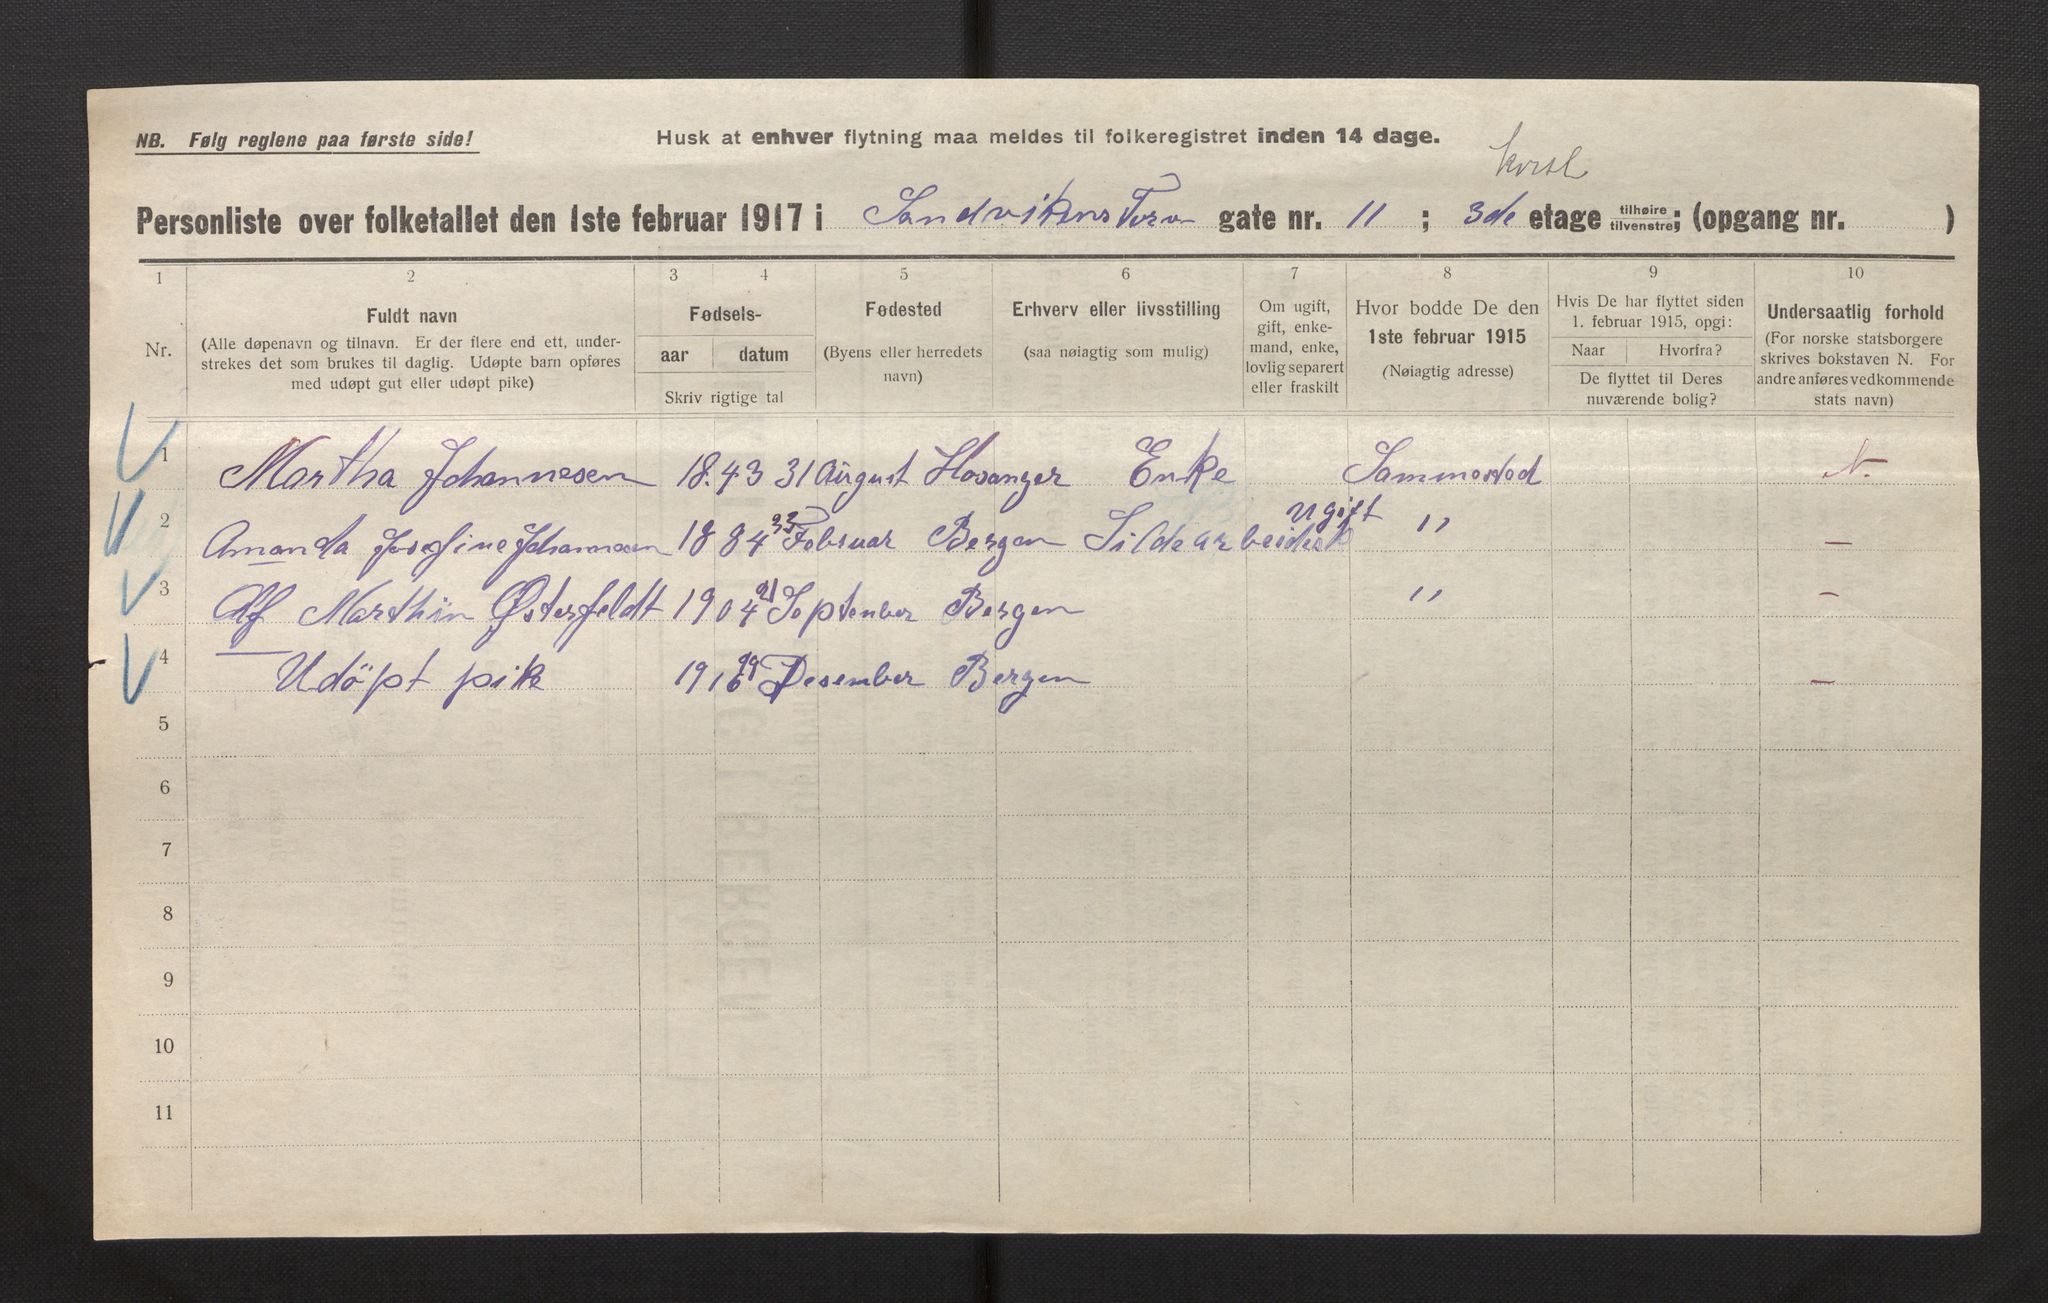 NB. Følg reglene paa første side! Husk at enhver flytning maa meldes til folkeregistret inden 14 dage.
Personliste over folketallet den 1ste februar 1917 i Sandvikens Torv gate nr. 11 ; 3de etage tilhøire tilvenstre ; (opgang nr. )
1 2 3 4 5 6 7 8 9 10
Nr.
Fuldt navn
(Alle døpenavn og tilnavn. Er der flere end ett, under-
strekes det som brukes til daglig. Udøpte barn opføres
med udøpt gut eller udøpt pike)
Fødsels-
aar datum
Skriv rigtige tal
Fødested
(Byens eller herredets
navn)
Erhverv eller livsstilling
(saa nøiagtig som mulig)
Om ugift,
gift, enke-
mand, enke,
lovlig separert
eller fraskilt
Hvor bodde De den
1ste februar 1915
(Nøiagtig adresse)
Hvis De har flyttet siden
1. februar 1915, opgi:
Naar Hvorfra?
De flyttet til Deres
nuværende bolig?
Undersaatlig forhold
(For norske statsborgere
skrives bokstaven N. For
andre anføres vedkommende
stats navn)
1 Martha Johannesen 18.43 31 August Hosanger Enke Sammested N.
2 Amanda Josefine Johannesen 1884 Februar Bergen Sildearbeidesk ugift " —
3 Alf Marthin Østerfeldt 1904 21 September Bergen " —
4 Udöpt pike 1916 29 Desember Bergen —
5
6
7
8
9
10
11